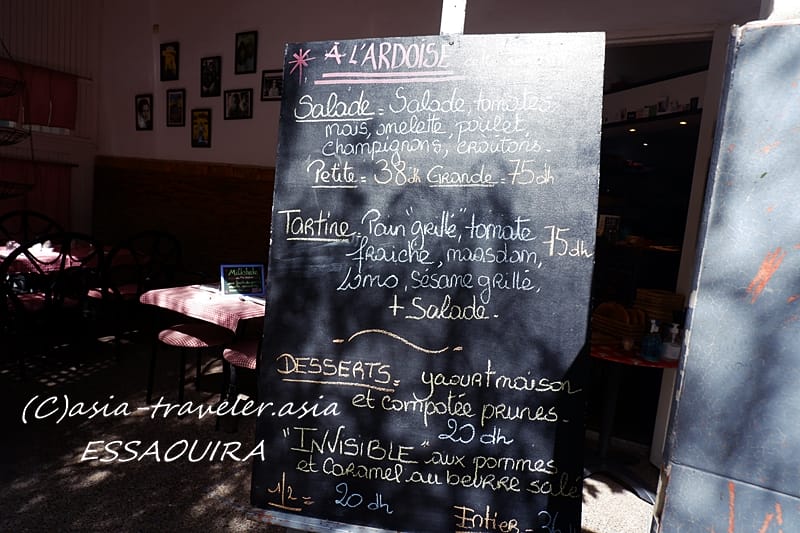 À L'ARDOISE
Salade = Salade, tomates
maïs, omelette, poulet,
champignons, croûtons.
Petite = 38dh Grande = 75dh
Tartine = Pain "grillé", tomate
fraiche, maasdam, 75dh
Lomo, sésame grillé,
+ Salade.
DESSERTS = yaourt maison
et compotée prunes.
20 dh
"INVISIBLE" aux pommes
et caramel au beurre salé
1/2 = 20 dh
Entier =
Milkshake
(C)asia-traveler.asia
ESSAOUIRA